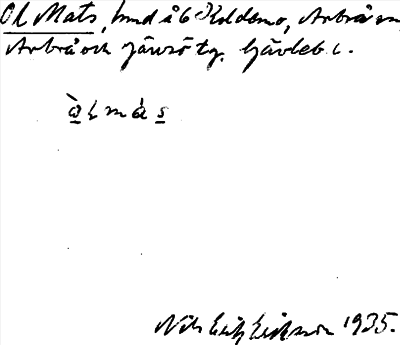 Ol Mats, hmd å 6 Koldemo, Arbrå sn,
Arbrå och Järvsö tg. Gävleb. l.
ὰ l m à s
Nils Erik Eriksson 1935.